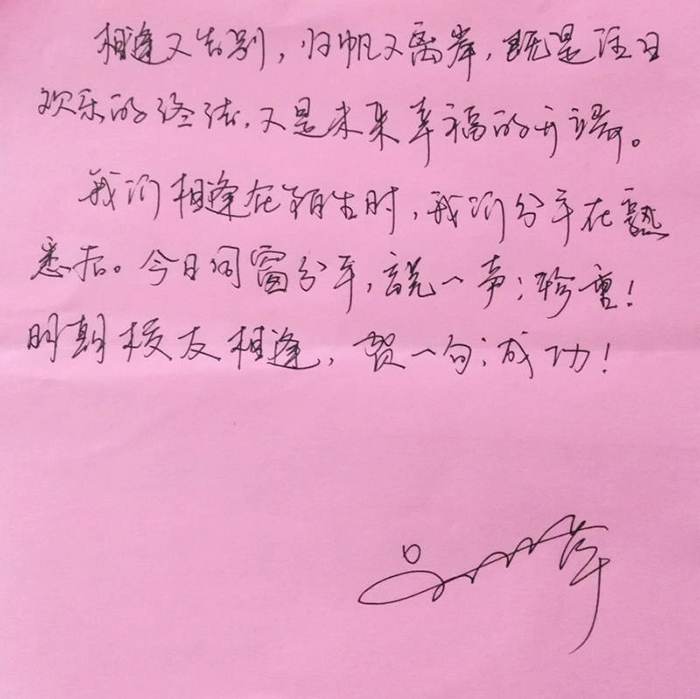 相逢又告别，归帆又离岸，既是往日
欢乐的终结，又是未来幸福的开端。
我们相逢在陌生时，我们分手在熟
悉后。今日同窗分手，说一声：珍重！
明朝校友相逢，贺一句：成功！